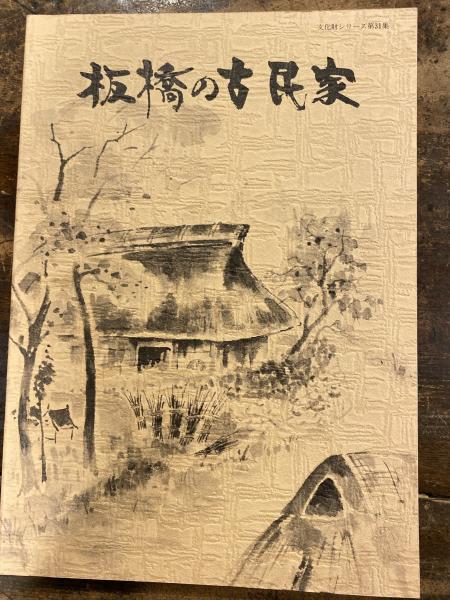 文化財シリーズ第31集
板橋の古民家